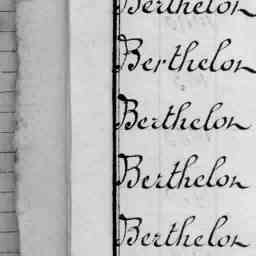 Berthelon
Berthelon
Berthelon
Berthelon
Berthelon